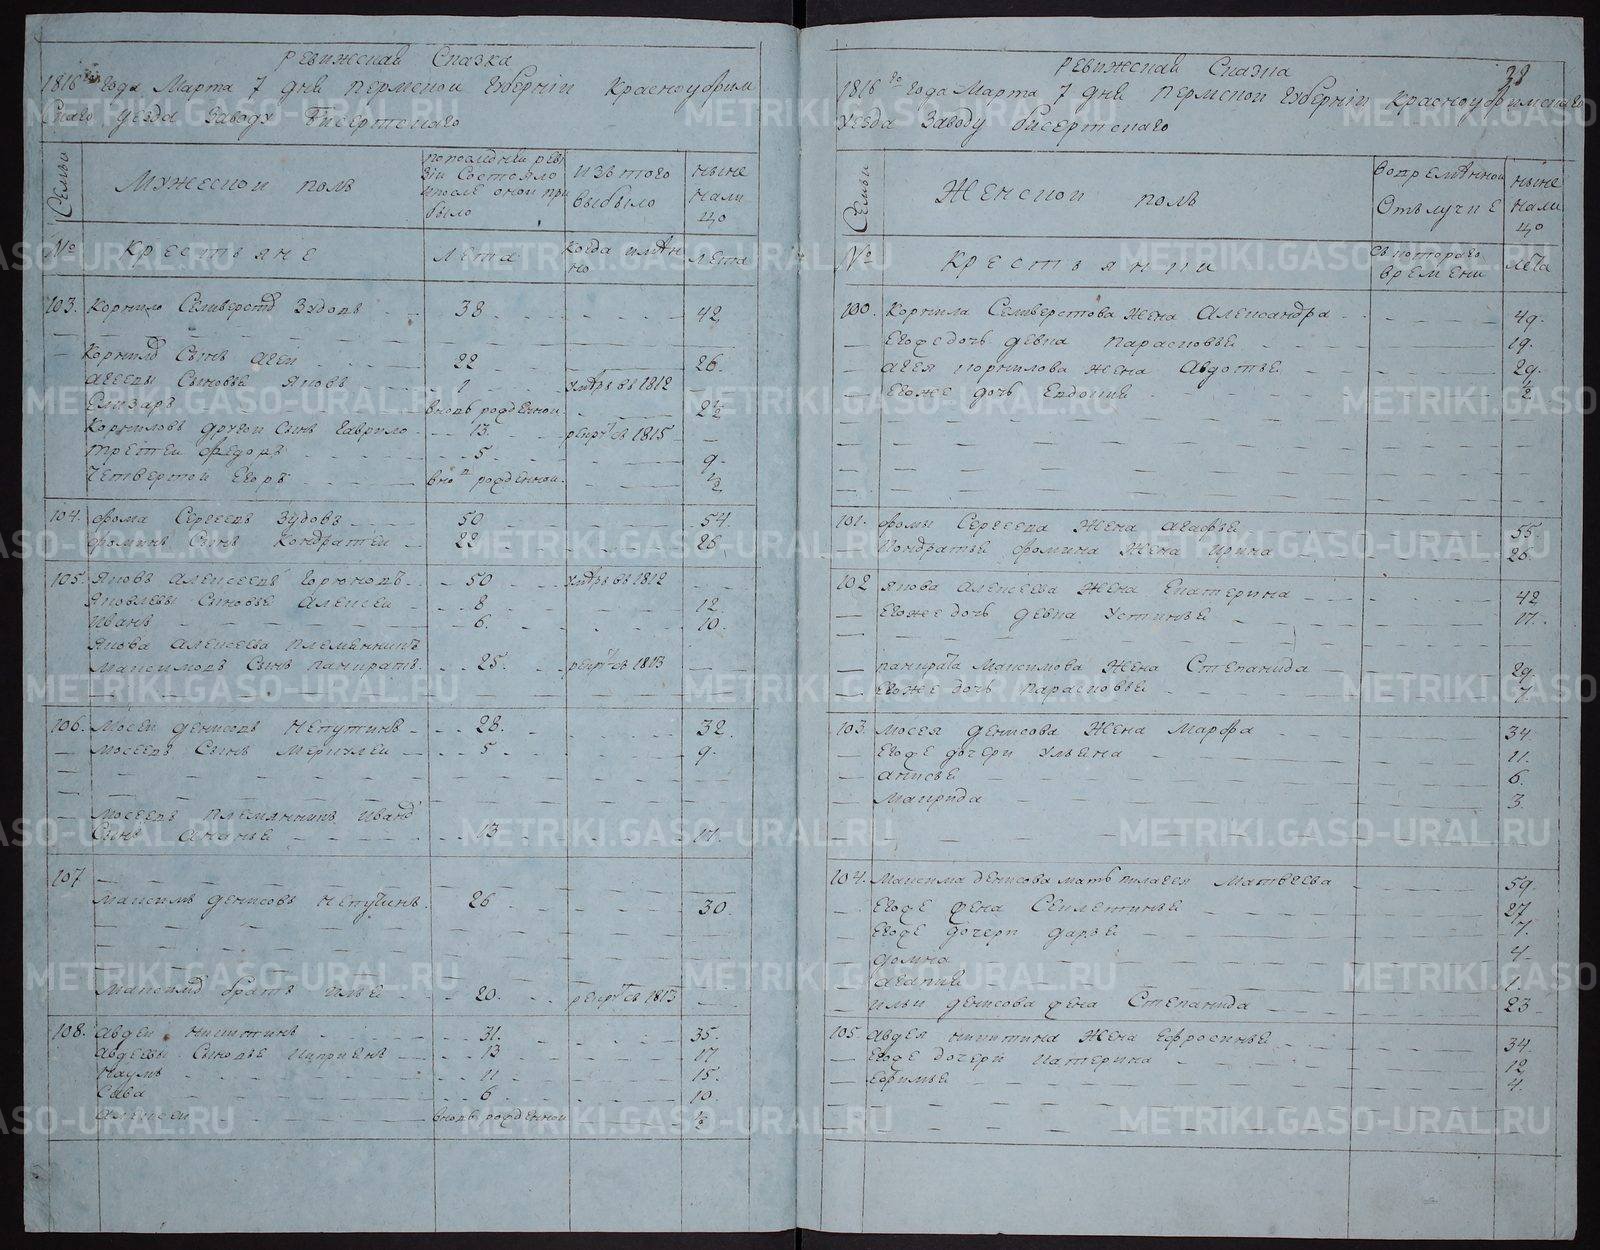 Ревижская Сказка
1816го Года Марта 7 дня Пермской Губернїи Красноуфим
Скаго уезда Заводу Бисертскаго
Семьи
Мужеской полъ
по последней реви
зїи Состояло
и после оной при
было
изъ того
выбыло
ныне
нали
цо
№
Крестьяне
Лета
Когда имянно
Лета
103. Корнило Селиверстовъ Зудовъ 38 42
Корниловъ Сынъ Агей 22 26
Агеевы Сыновье Яковъ 1 умръ въ 1812
Елизаръ вновь рожденной 2 1/2
Корниловъ другой Сынъ Гаврило 13 рекрут въ 1815
третей Федоръ 5 9
Четвертой Егоръ внов рожденной 1/2
104. Фома Сергеевъ Зудовъ 50 54
Фоминъ Сынъ Кондратей 22 26
105. Яковъ Алексеевъ Горюновъ 50 умръ въ 1812
Яковлевы Сыновье Алексей 8 12
Иванъ 6 10
Якова Алексеева племянникъ
Максимовъ Сынъ Панкратъ 25 рекрут въ 1813
106. Мосей Денисовъ Непутинъ 28 32
Мосеевъ Сынъ Меркулей 5 9
Мосеевъ племянникъ Иванов
Сынъ Ананье 13 17
107
Максимъ Денисовъ Непутинъ 26 30
Максимов братъ Илья 20 рекрут въ 1813
108. Авдей Никитинъ 31 35
Авдеевы Сыновье Киприянъ 13 17
Наумъ 11 15
Сава 6 10
Алексей вновь рожденной 1/2
38
Ревижская Сказка
1816го Года Марта 7 дня Пермской Губернїи Красноуфимскаго
уезда Заводу Бисертскаго
Семьи
Женской полъ
Вовременной
Отълучке
ныне
нали
цо
№
Крестьянки
Съ котораго
времени
лета
100. Корнила Селиверстова жена Александра 49
Егоже дочь девка Парасковья 19
Агея Корнилова жена Авдотья 29
Егоже дочь Евдокия 1/2
101. Фомы Сергеева жена Агафья 55
Кондратья Фомина жена Ирина 26
102 Якова Алексеева жена Екатерина 42
Егоже дочь девка Устинья 17
Панкрата Максимова жена Степанида 29
Егоже дочь Парасковья 7
103. Мосея Денисова жена Марфа 34
Егоже дочери Ульяна 11
Анисья 6
Макрида 3
104. Максима Денисова мать Пилагея Матвеева 59
Егоже жена Секлетинья 27
Егоже дочери Дарья 7
Домна 4
Агапия 1
Ильи Денисова жена Степанида 23
105. Авдея Никитина жена Ефросинья 34
Егоже дочери Катерина 12
Ефимья 4
METRIKI.GASO-URAL.RU